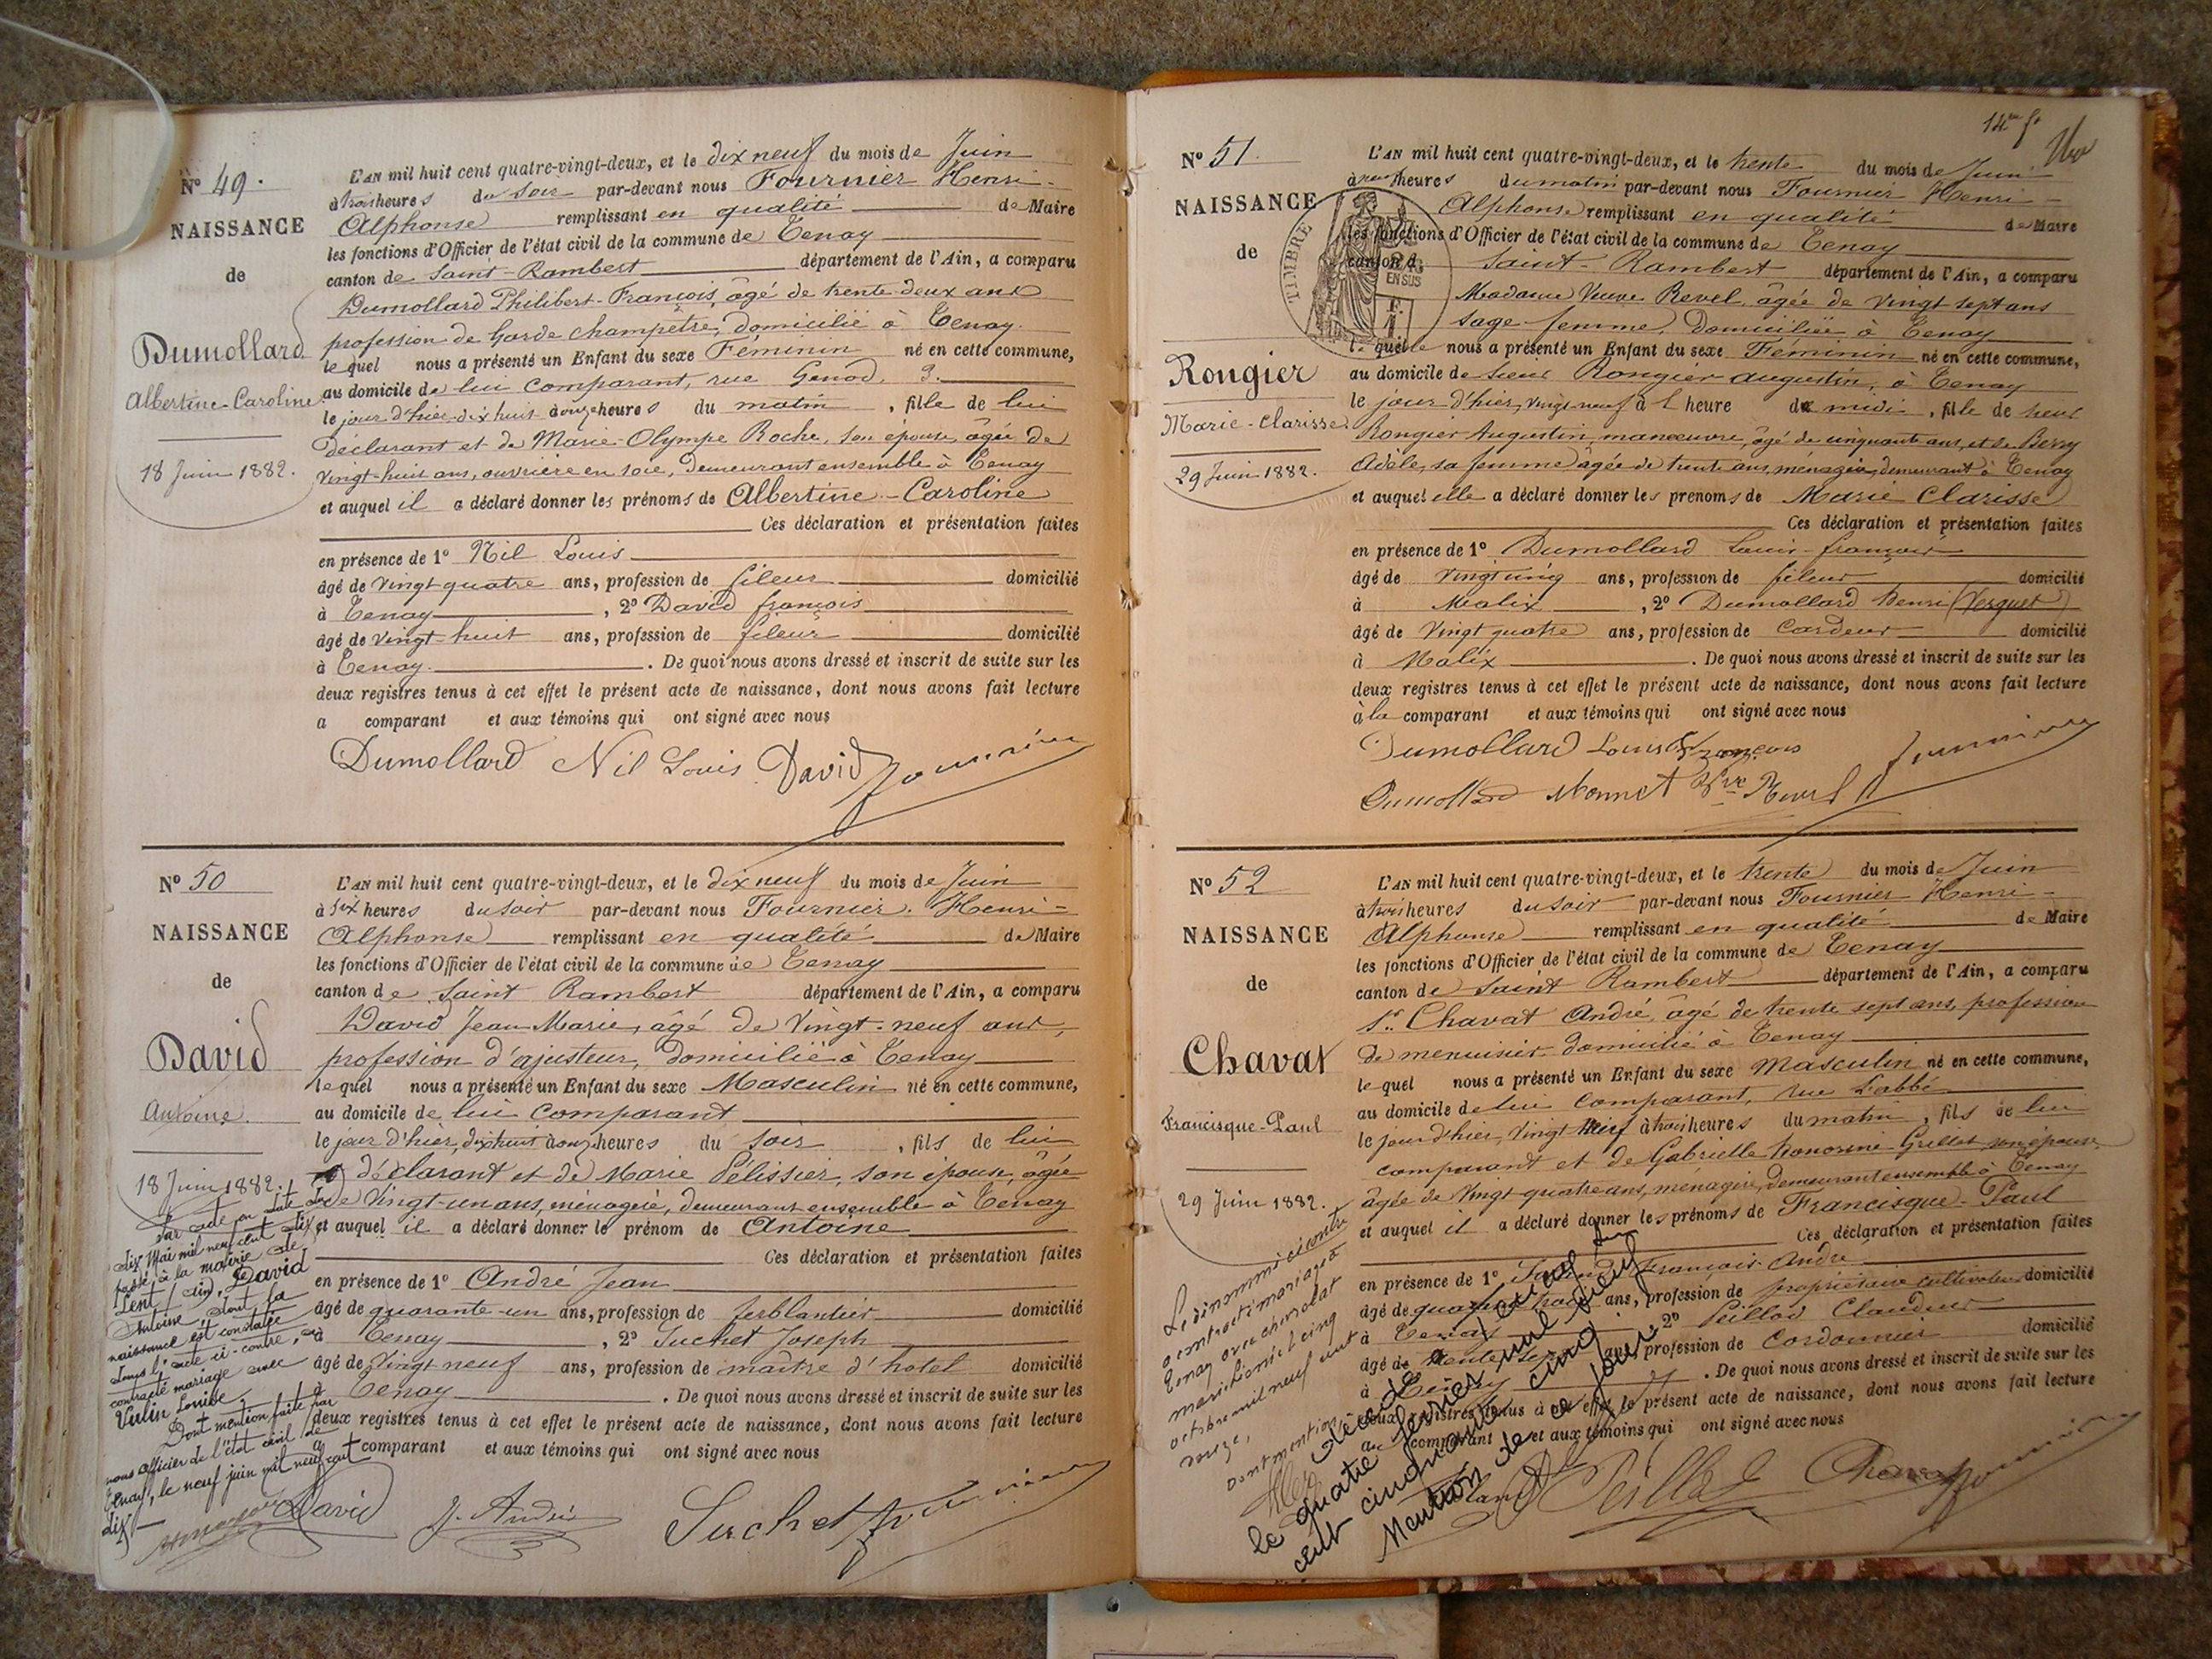 Nº 49.
NAISSANCE
de
Dumollard
Albertine-Caroline
18 Juin 1882.
L'AN mil huit cent quatre-vingt-deux, et le dix neuf du mois de Juin
à trois heures du soir par-devant nous Fournier Henri-
Alphonse remplissant en qualité de Maire
les fonctions d'Officier de l'état civil de la commune de Tenay
canton de Saint-Rambert département de l'Ain, a comparu
Dumollard Philibert-François, âgé de trente-deux ans
profession de Garde champêtre, domicilié à Tenay
le quel nous a présenté un Enfant du sexe Féminin né en cette commune,
au domicile de lui comparant, rue Genod, 9.
le jour d'hier dix huit à onze heures du matin, fille de lui
déclarant et de Marie-Olympe Roche, son épouse, âgée de
vingt-huit ans, ouvrière en soie, demeurant ensemble à Tenay
et auquel il a déclaré donner les prénoms de Albertine-Caroline
Ces déclaration et présentation faites
en présence de 1º Nil Louis
âgé de vingt quatre ans, profession de fileur domicilié
à Tenay, 2º David françois
âgé de vingt-huit ans, profession de fileur domicilié
à Tenay. De quoi nous avons dressé et inscrit de suite sur les
deux registres tenus à cet effet le présent acte de naissance, dont nous avons fait lecture
a comparant et aux témoins qui ont signé avec nous
Dumollard Nil Louis David Fournier
Nº 50
NAISSANCE
de
David
Antoine.
18 Juin 1882.
Par acte en date du
dix Mai mil neuf cent dix
passé à la mairie de
Lent (Ain), David
Antoine, dont la
naissance est constatée
dans l'acte ci-contre, a
contracté mariage avec
Vulin Louise
Dont mention faite par
nous officier de l'état civil de
Tenay, le neuf juin mil neuf cent
dix
L'AN mil huit cent quatre-vingt-deux, et le dix neuf du mois de Juin
à six heures du soir par-devant nous Fournier Henri-
Alphonse remplissant en qualité de Maire
les fonctions d'Officier de l'état civil de la commune de Tenay
canton de Saint Rambert département de l'Ain, a comparu
David Jean Marie, âgé de vingt-neuf ans,
profession d'ajusteur, domicilié à Tenay
le quel nous a présenté un Enfant du sexe Masculin né en cette commune,
au domicile de lui comparant
le jour d'hier, dix huit à onze heures du soir, fils de lui
déclarant et de Marie Pélissier, son épouse, âgée
de vingt-un ans, ménagère, demeurant ensemble à Tenay
et auquel il a déclaré donner le prénom de Antoine
Ces déclaration et présentation faites
en présence de 1º André Jean
âgé de quarante-un ans, profession de ferblantier domicilié
à Tenay, 2º Suchet Joseph
âgé de vingt neuf ans, profession de maître d'hotel domicilié
à Tenay. De quoi nous avons dressé et inscrit de suite sur les
deux registres tenus à cet effet le présent acte de naissance, dont nous avons fait lecture
a comparant et aux témoins qui ont signé avec nous
David J. André Suchet Fournier
14me f.
Nº 51.
NAISSANCE
de
TIMBRE
EN SUS
Rougier
Marie-Clarisse
29 Juin 1882.
L'AN mil huit cent quatre-vingt-deux, et le trente du mois de Juin
à neuf heures du matin par-devant nous Fournier Henri-
Alphonse remplissant en qualité de Maire
les fonctions d'Officier de l'état civil de la commune de Tenay
canton d Saint-Rambert département de l'Ain, a comparu
Madame Veuve Revel, âgée de vingt sept ans
sage-femme, domiciliée à Tenay
la quelle nous a présenté un Enfant du sexe Féminin né en cette commune,
au domicile de sieur Rougier Augustin, à Tenay
le jour d'hier, vingt neuf à 1 heure de midi, fille de sieur
Rougier Augustin, manœuvre, âgé de cinquante ans, et de Berry
Adèle, sa femme âgée de trente ans, ménagère, demeurant à Tenay
et auquel elle a déclaré donner les prénoms de Marie Clarisse
Ces déclaration et présentation faites
en présence de 1º Dumollard Louis-françois
âgé de vingt cinq ans, profession de fileur domicilié
à Malix, 2º Dumollard henri (Verguet)
âgé de vingt quatre ans, profession de cardeur domicilié
à Malix. De quoi nous avons dressé et inscrit de suite sur les
deux registres tenus à cet effet le présent acte de naissance, dont nous avons fait lecture
à la comparant et aux témoins qui ont signé avec nous
Dumollard Louis François Fournier
Dumollard Monnet Vve Revel
Nº 52
NAISSANCE
de
Chavat
Francisque-Paul
29 Juin 1882.
Le dénommé ci contre
a contracté mariage à
Tenay avec
octobre mil neuf cent
onze,
dont mention
L'AN mil huit cent quatre-vingt-deux, et le trente du mois de Juin
à trois heures du soir par-devant nous Fournier Henri-
Alphonse remplissant en qualité de Maire
les fonctions d'Officier de l'état civil de la commune de Tenay
canton de Saint Rambert département de l'Ain, a comparu
Sr. Chavat André, âgé de trente sept ans, profession
de menuisier domicilié à Tenay
le quel nous a présenté un Enfant du sexe Masculin né en cette commune,
au domicile de lui comparant, rue Labbé
le jour d'hier, vingt neuf à trois heures du matin, fils de lui
comparant et de Gabrielle honorine Grillet, son épouse
âgée de vingt quatre ans, ménagère, demeurant ensemble à Tenay
et auquel il a déclaré donner les prénoms de Francisque-Paul
Ces déclaration et présentation faites
en présence de 1º François-André
âgé de ans, profession de propriétaire cultivateur domicilié
à Tenay 2º Peillod Claudius
âgé de trente ans, profession de Cordonnier domicilié
à Tenay. De quoi nous avons dressé et inscrit de suite sur les
deux registres tenus à cet effet le présent acte de naissance, dont nous avons fait lecture
au comparant et aux témoins qui ont signé avec nous
Peillod Chavat Fournier
Décédé
le quatre février mil neuf
cent cinquante cinq
Mention de ce jour.